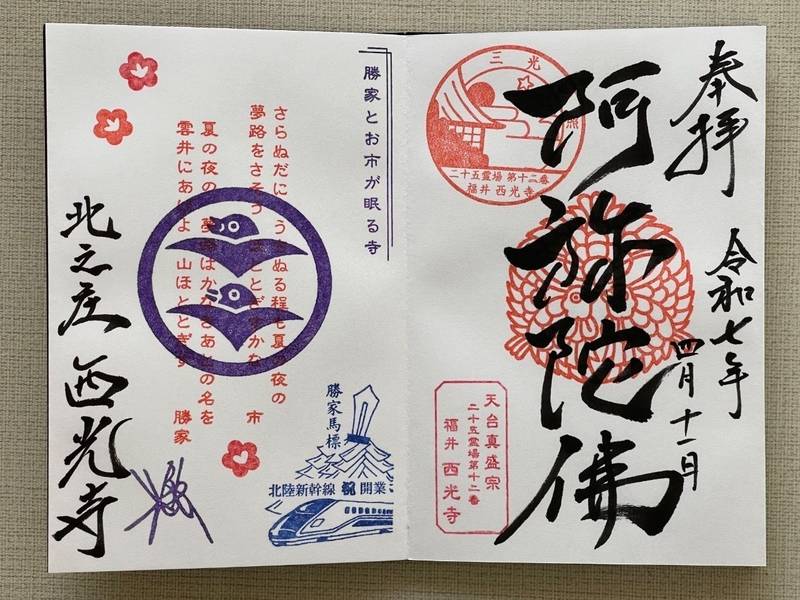 奉拝
令和七年
四月十一月
阿弥陀佛
三光
二十五霊場 第十二番
福井 西光寺
天台真盛宗
二十五霊場第十二番
福井 西光寺
勝家とお市が眠る寺
さらぬだに うちぬる程も夏の夜の
夢路をさそう ほととぎすかな
市
夏の夜の 夢路はかなきあとの名を
雲井にあげよ 山ほととぎす
勝家
北之庄 西光寺
勝家馬標
北陸新幹線 祝 開業